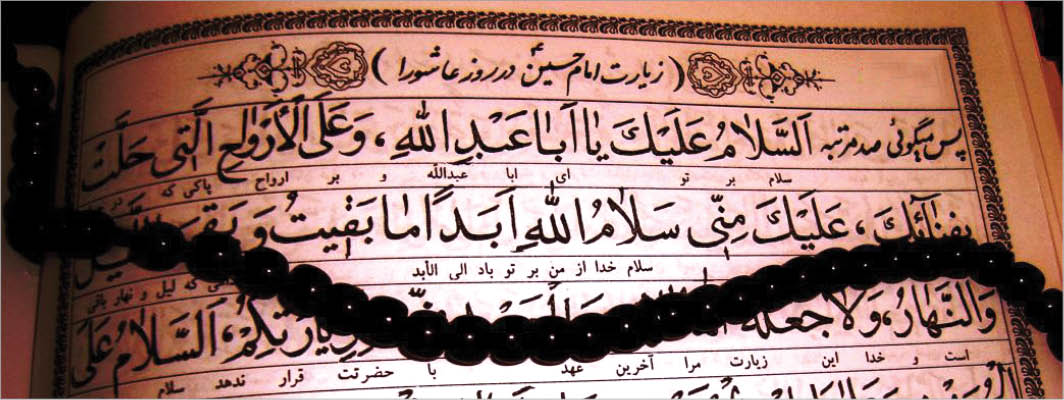 (زیارت امام حسین ع در روز عاشورا)
پس میگوئی صد مرتبه اَلسَّلامُ عَلَیْكَ یا اَبا عَبْدِاللهِ، وَعَلَى الْأَرْواحِ الَّتی حَلَّتْ
سلام بر تو ای ابا عبدالله و بر ارواح پاکی که در
بِفِنائِكَ، عَلَیْكَ مِنّی سَلامُ اللهِ اَبَدًا ما بَقیتُ وَ بَقِیَ
سلام خدا از من بر تو باد الی الأبد
که لیل و نهار باقی
وَالنَّهارُ، وَلا جَعَلَهُ لِزِیارَتِكُمْ، اَلسَّلامُ عَلَى
است و خدا این زیارت مرا آخرین عهد با حضرتت قرار ندهد سلام